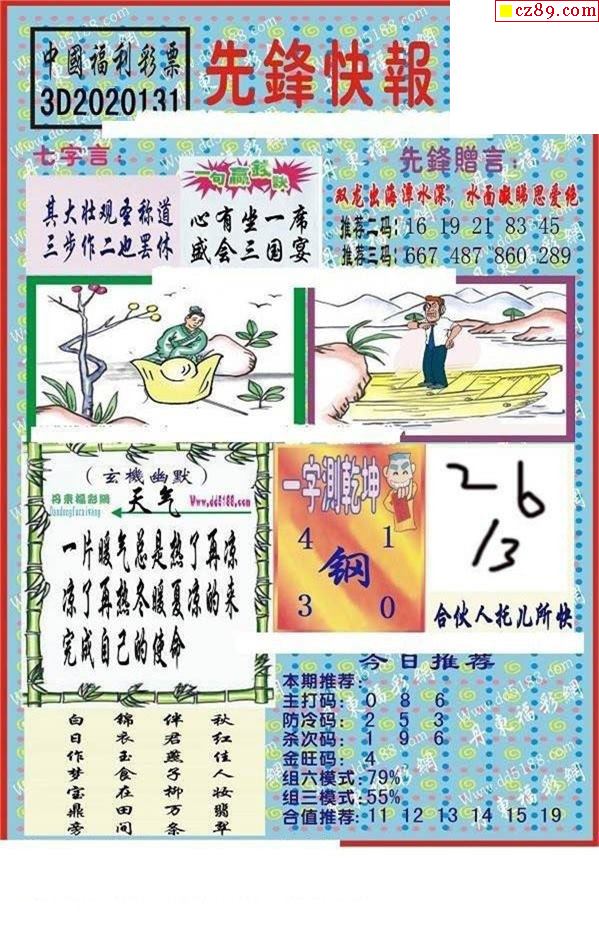 cz89.com
中國福利彩票
3D2020131
先鋒快報
七字言：
其大壮观圣称道
三步作二也罢休
一句赢钱诀
心有坐一席
盛会三国宴
先鋒贈言：
双龙出海潭水深，水面凝睇思爱绝
推荐二码：16 19 21 83 45
推荐三码：667 487 860 289
（玄機幽默）
丹東福彩網
Dandongfucaiwang
天气
Www.dd5188.com
一片暖气总是热了再凉
凉了再热冬暖夏凉的来
完成自己的使命
一字測乾坤
4 1
鋼
3 0
26
13
合伙人托儿所快
今日推荐
本期推荐：
主打码：0 8 6
防冷码：2 5 3
杀次码：1 9 6
金旺码：4
组六模式：79%
组三模式：55%
合值推荐：11 12 13 14 15 19
白日作梦宝鼎旁
锦衣玉食在田间
伴君燕子柳万条
秋红佳人妆翡翠